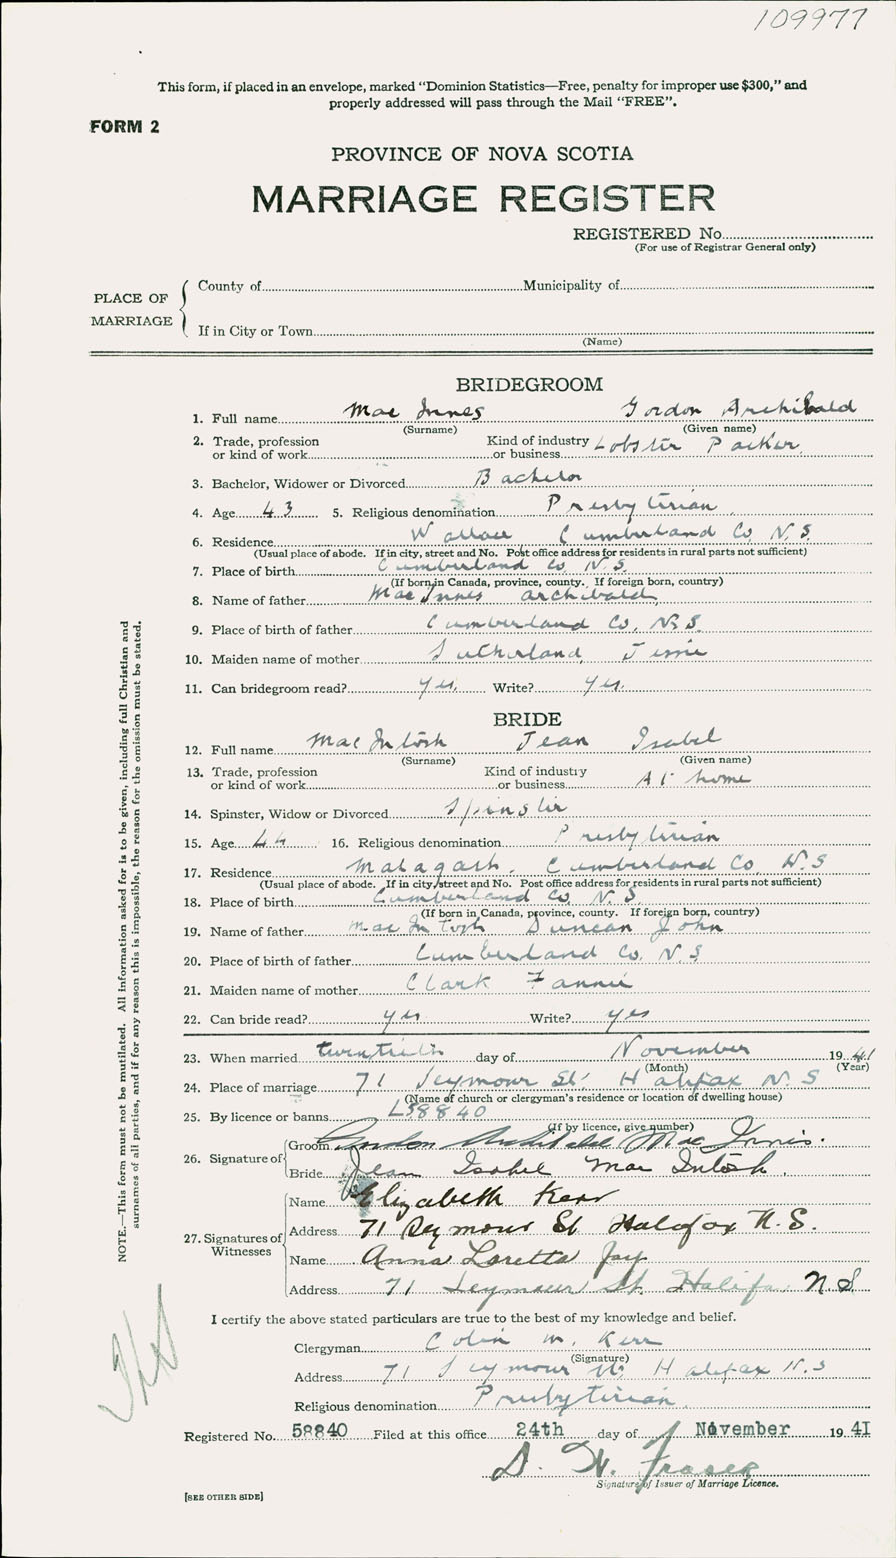 109977
This form, if placed in an envelope, marked "Dominion Statistics—Free, penalty for improper use $300," and
properly addressed will pass through the Mail "FREE".
FORM 2
PROVINCE OF NOVA SCOTIA
MARRIAGE REGISTER
REGISTERED No.
(For use of Registrar General only)
PLACE OF MARRIAGE
County of Municipality of
If in City or Town
(Name)
BRIDEGROOM
1. Full name Mac Innes Gordon Archibald
(Surname) (Given name)
2. Trade, profession or kind of work Kind of industry or business Lobster Packer
3. Bachelor, Widower or Divorced Bachelor
4. Age 43 5. Religious denomination Presbyterian
6. Residence Wallace Cumberland Co. N.S.
(Usual place of abode. If in city, street and No. Post office address for residents in rural parts not sufficient)
7. Place of birth Cumberland Co N.S.
(If born in Canada, province, county. If foreign born, country)
8. Name of father Mac Innes Archibald
9. Place of birth of father Cumberland Co. N.S.
10. Maiden name of mother Sutherland, Jessie
11. Can bridegroom read? Yes. Write? Yes.
BRIDE
12. Full name Mac Intosh Jean Isabel
(Surname) (Given name)
13. Trade, profession or kind of work Kind of industry or business At home
14. Spinster, Widow or Divorced Spinster
15. Age 44 16. Religious denomination Presbyterian
17. Residence Malagash, Cumberland Co. N.S
(Usual place of abode. If in city, street and No. Post office address for residents in rural parts not sufficient)
18. Place of birth Cumberland Co N.S.
(If born in Canada, province, county. If foreign born, country)
19. Name of father Mac Intosh Duncan John
20. Place of birth of father Cumberland Co. N.S.
21. Maiden name of mother Clark Fannie
22. Can bride read? yes Write? yes
23. When married twentieth day of November 1941
(Month) (Year)
24. Place of marriage 71 Seymour St. Halifax N.S
(Name of church or clergyman's residence or location of dwelling house)
25. By licence or banns L58840
(If by licence, give number)
26. Signature of
Groom Gordon Archibald Mac Innis.
Bride Jean Isabel Mac Intosh.
27. Signatures of Witnesses
Name Elizabeth Kerr
Address 71 Seymour St Halifax N.S.
Name Anna Loretta Jay
Address 71 Seymour St. Halifax N.S
I certify the above stated particulars are true to the best of my knowledge and belief.
Clergyman Colin M. Kerr
(Signature)
Address 71 Seymour St. Halifax N.S
Religious denomination Presbyterian
Registered No. 58840 Filed at this office 24th day of November 1941
D. W. Fraser
Signature of Issuer of Marriage Licence.
[SEE OTHER SIDE]
NOTE.—This form must not be mutilated. All information asked for is to be given, including full Christian and
surnames of all parties, and if for any reason this is impossible, the reason for the omission must be stated.